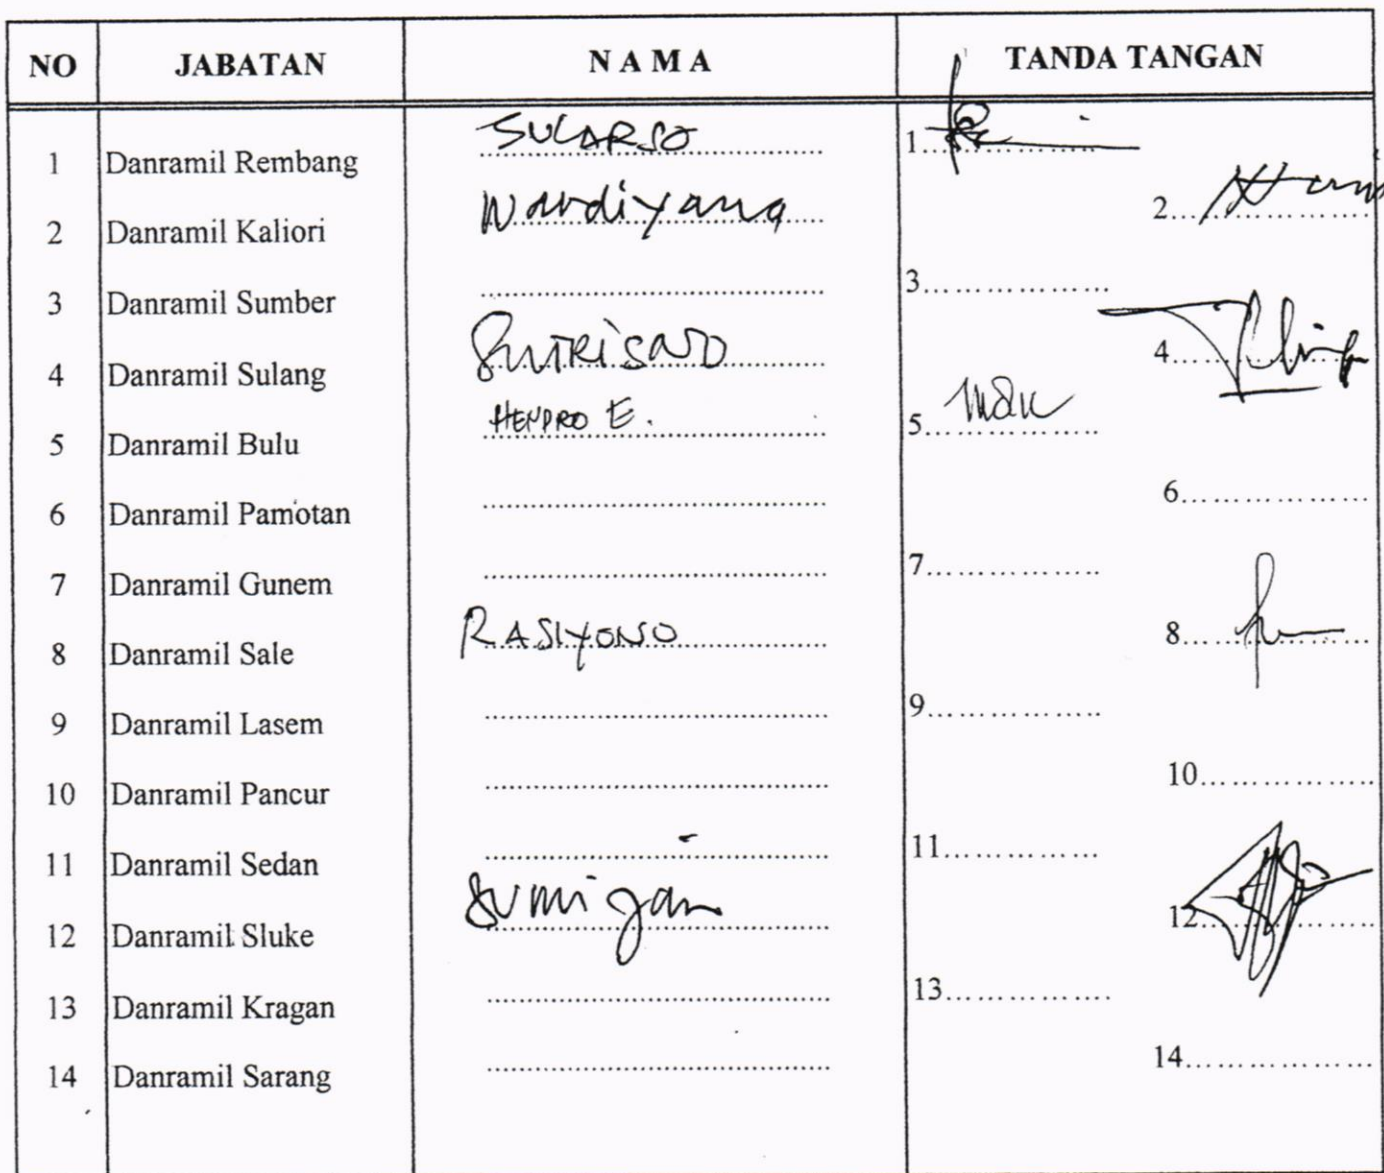 NO JABATAN N A M A TANDA TANGAN
1 Danramil Rembang SULARSO 1
2 Danramil Kaliori Wardiyana 2
3 Danramil Sumber 3
4 Danramil Sulang SUTRISNO 4
5 Danramil Bulu HENDRO E. 5
6 Danramil Pamotan 6
7 Danramil Gunem 7
8 Danramil Sale RASIYONO 8
9 Danramil Lasem 9
10 Danramil Pancur 10
11 Danramil Sedan 11
12 Danramil Sluke Sumijan 12
13 Danramil Kragan 13
14 Danramil Sarang 14